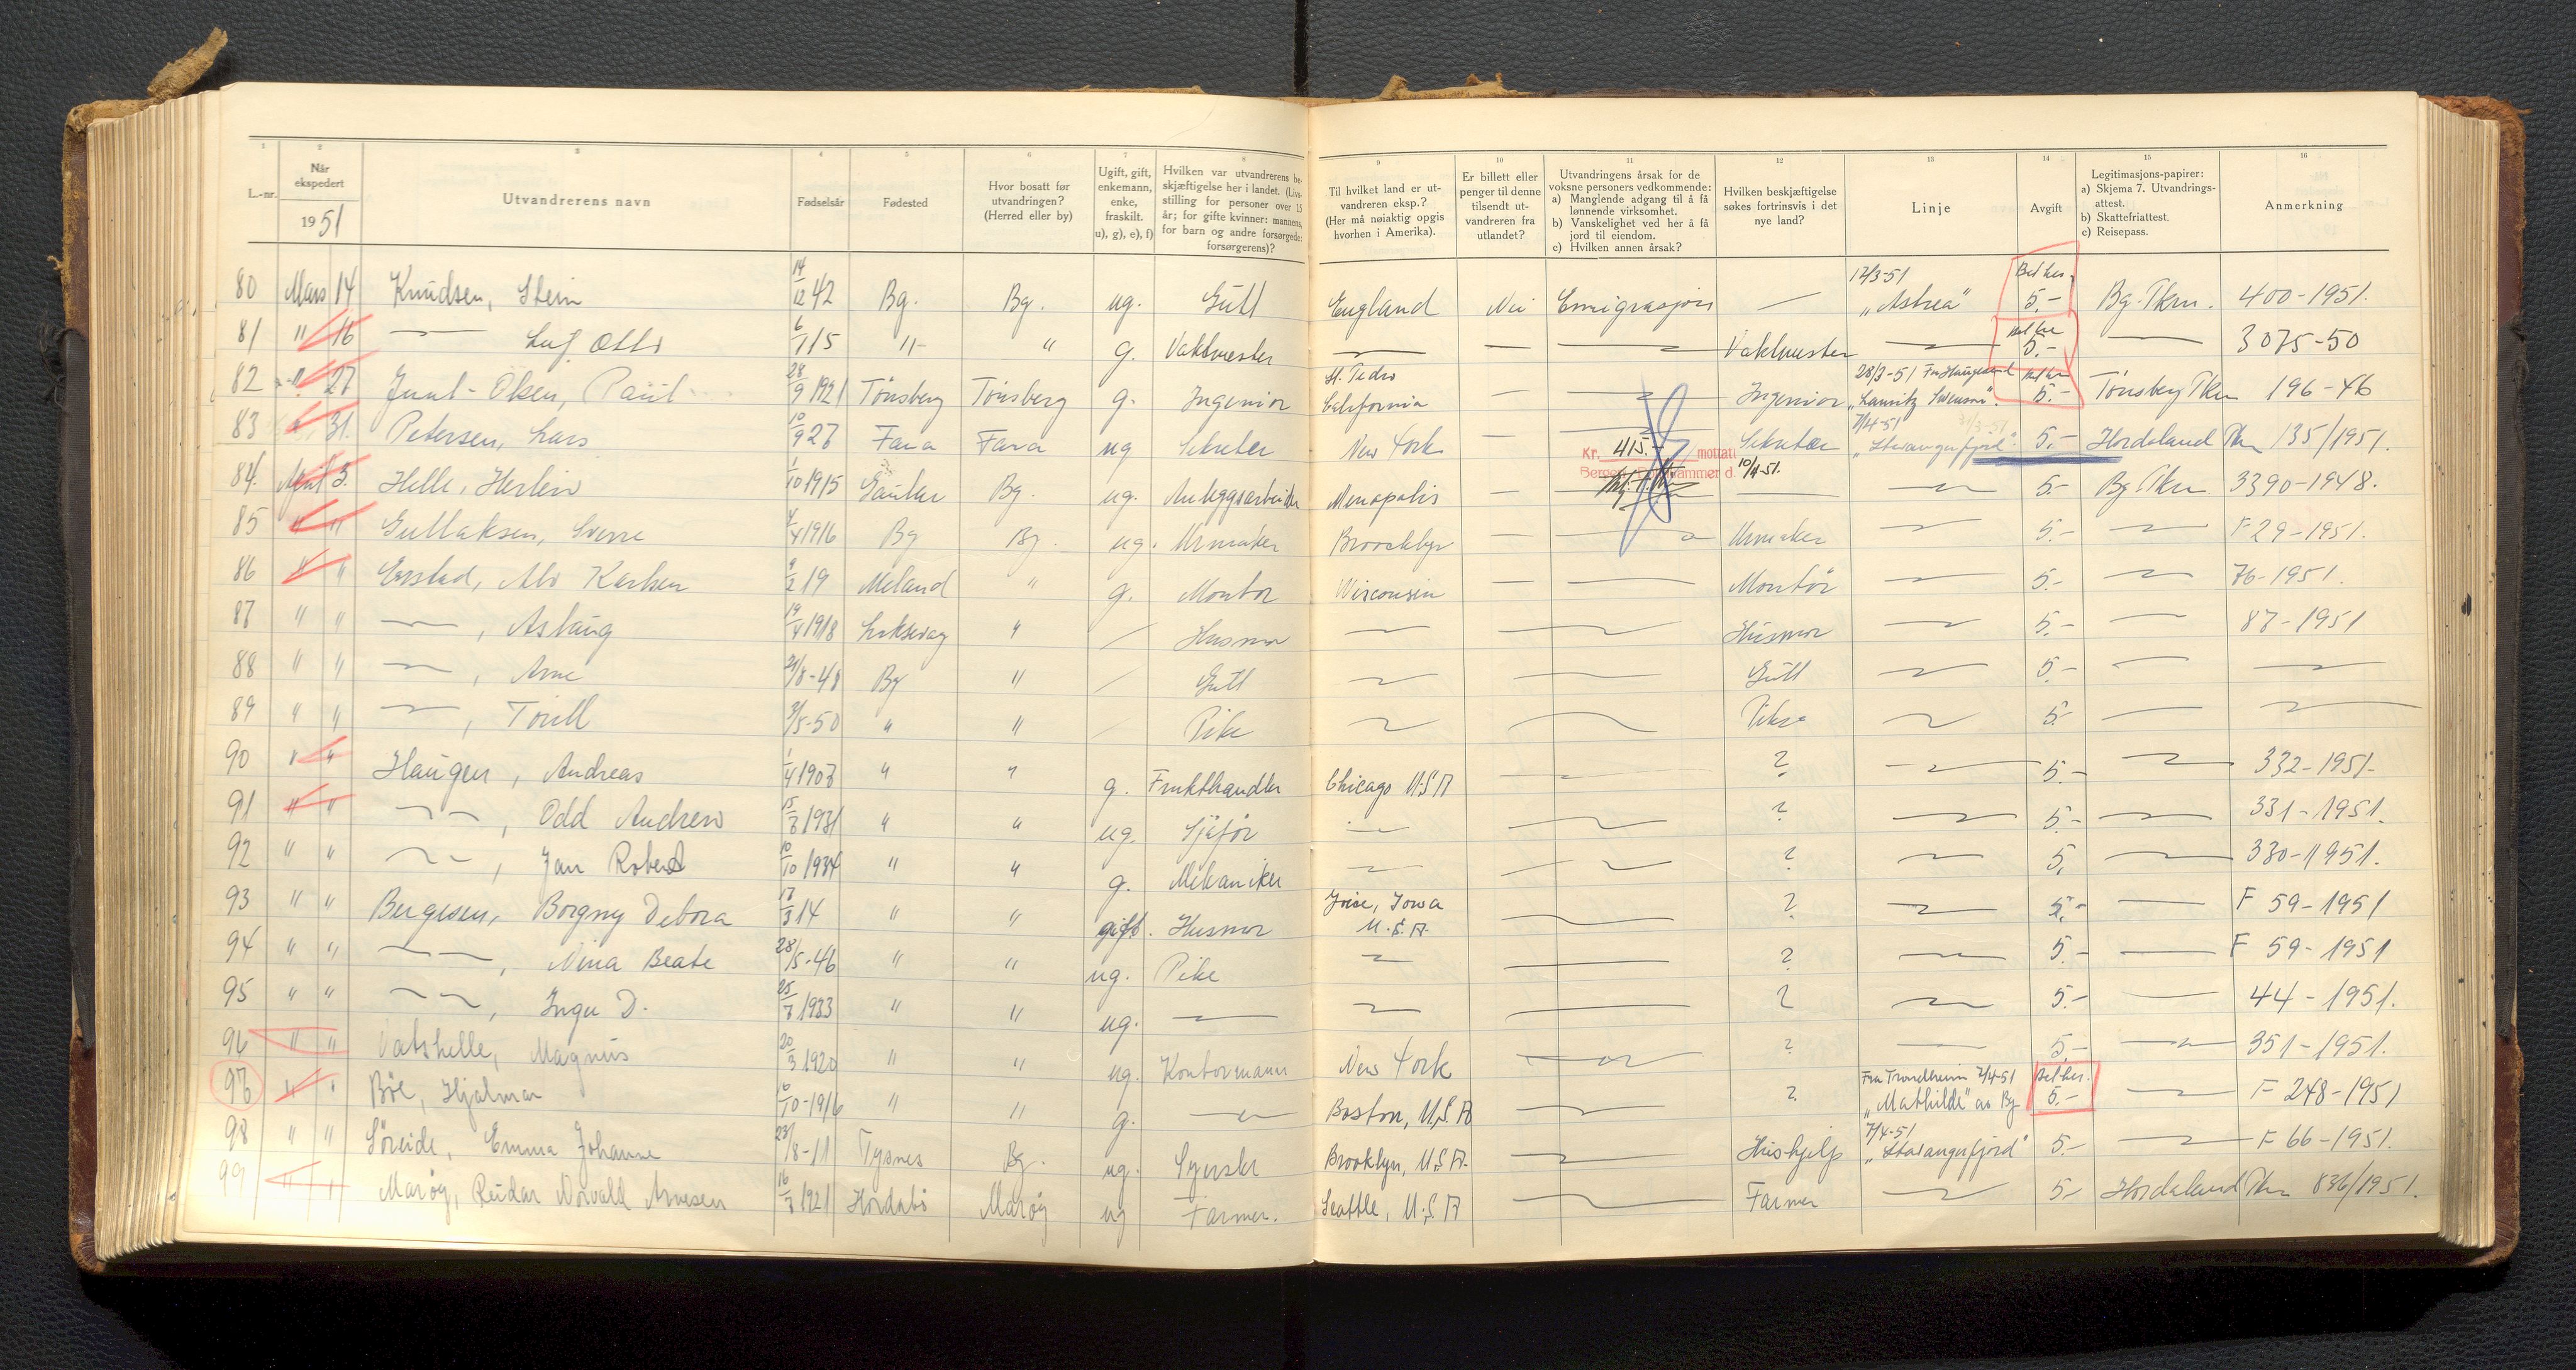 1 2 3 4 5 6 7 8 9 10 11 12 13 14 15 16
L.-nr. Når ekspedert 1951 Utvandrerens navn Fødselsår Fødested Hvor bosatt før utvandringen? (Herred eller by) Ugift, gift, enkemann, enke, fraskilt. u), g), e), f) Hvilken var utvandrerens beskjæftigelse her i landet. (Livsstilling for personer over 15 år; for gifte kvinner: mannens, for barn og andre forsørgede: forsørgerens)? Til hvilket land er utvandreren eksp.? (Her må nøiaktig opgis hvorhen i Amerika). Er billett eller penger til denne tilsendt utvandreren fra utlandet? Utvandringens årsak for de voksne personers vedkommende: a) Manglende adgang til å få lønnende virksomhet. b) Vanskelighet ved her å få jord til eiendom. c) Hvilken annen årsak? Hvilken beskjæftigelse søkes fortrinsvis i det nye land? Linje Avgift Legitimasjons-papirer: a) Skjema 7. Utvandringsattest. b) Skattefriattest. c) Reisepass. Anmerkning
80 Mars 14 Knudsen, Stein 14/12 42 Bg. Bg. ug. Gutt England Nei Emigrasjon — 12/3-51 "Astrea" 5.- Bg. Pkm. 400-1951.
81 " 16 — Leif Otto 6/1 15 " " g. Vaktmester — — — Vaktmester — 5.- — 3075-50
82 " 27 Juul-Olsen, Paul 28/9 1921 Tønsberg Tønsberg g. Ingeniør St. Pedro California — — Ingeniør 28/3-51 Fra Haugesund "Lauritz Swenson". 5.- Tønsberg Pkm 196-46
83 " 31. Petersen, Lars 10/9 27 Fana Fana ug Sekretær New York — — Sekretær 7/4-51 "Stavangerfjord". 5.- Hordaland Pkm 135/1951.
Kr. 415.- mottatt
Bergen Politikammer d. 10/4-51.
84. April 3. Helle, Herleiv 1/10 1915 Gaular Bg. ug. Anleggsarbeider Menapolis — — — — 5.- Bg. Pkm 3390-1948.
85 " " Gullaksen, Sverre 4/4 1916 Bg Bg. ug. Urmaker Broocklyn — — Urmaker — 5.- — F 29-1951.
86 " " Erstad, Alv Karlsen 9/2 19 Meland " g. Montør Wisconsin — — Montør — 5.- — 76-1951.
87 " " —, Aslaug 19/4 1918 Laksevåg " / Husmor — — Husmor — 5.- — 87-1951
88 " " —, Arne 21/8-48 Bg " / Gutt — — Gutt — 5.- — —
89 " " —, Torill 3/5-50 " " / Pike — — Pike — 5.- — —
90 " " Haugen, Andreas 1/4 1903 " " g. Frukthandler Chicago U.S.A — ? — 5.- — 332-1951-
91 " " —, Odd Andrew 15/3 1931 " " ug. Sjåfør — — ? — 5.- — 331-1951.
92 " " —, Jan Robert 10/10 1934 " " g. Mekaniker — — ? — 5. — 330-1951.
93 " " Bergesen, Borgny Debora 13/3 14 " " gift. Husmor Joice, Iowa U.S.A. — ? — 5.- — F 59-1951
94 " " —, Nina Beate 28/5-46 " " ug. Pike — — ? — 5.- — F 59-1951
95 " " —, Inger D. 25/3 1933 " " ug. — — — ? — 5.- — 44-1951.
96 " " Vatshelle, Magnus 20/3 1920 " " ug. Kontormann New York — ? — 5.- — 351-1951.
97 " " Böe, Hjalmar 6/10-1916 " " g. — Boston, U.S.A — ? Fra Trondheim 2/4-51 "Mathilde" av Bg 5.- — F 248-1951
98 " " Söreide, Emma Johanne 23/8-11 Tysnes Bg. ug. Syerske Brooklyn, U.S.A. — Hushjelp 7/4-51 "Stavangerfjord" 5.- — F 66-1951.
99 " " Marøy, Reidar Norvald Arnesen 16/3 1921 Hordabö Marøy ug Farmer. Seattle, U.S.A — Farmer — 5.- Hordaland Pkm 836/1951.